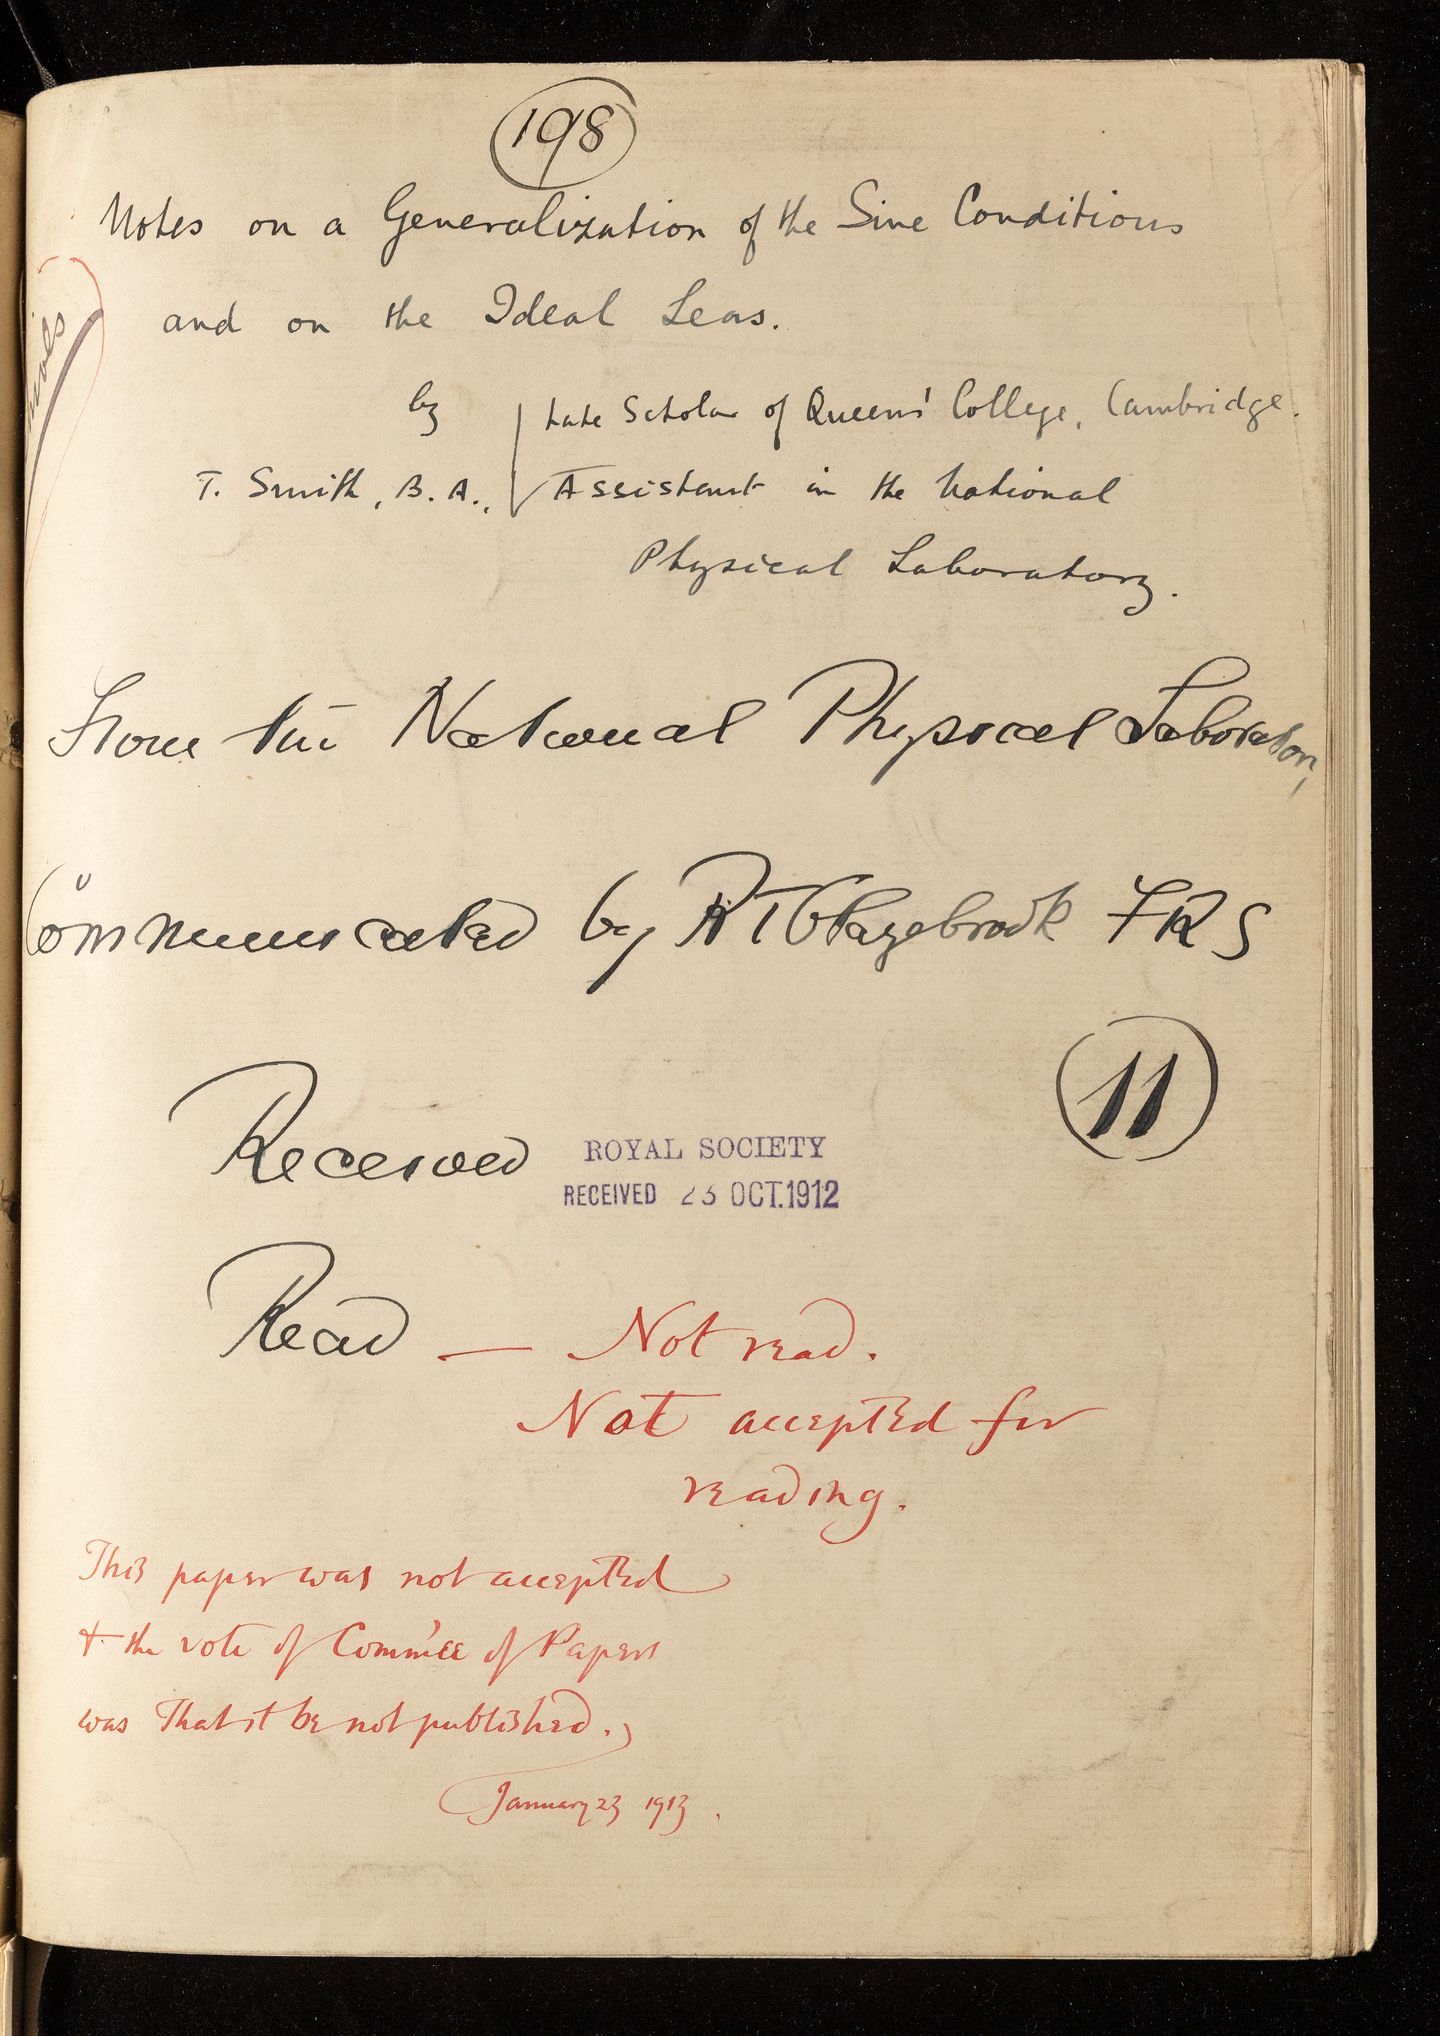 198
Notes on a Generalization of the Sine Conditions
and on the Ideal Lens.
by
Late Scholar of Queens' College, Cambridge.
T. Smith, B.A.,
Assistant in the National
Physical Laboratory.
From the National Physical Laboratory
Communicated by R T Glazebrook FRS
11
Received
ROYAL SOCIETY
RECEIVED 23 OCT.1912
Read — Not read.
Not accepted for
reading.
This paper was not accepted
& the vote of Comm'ee of Papers
was that it be not published.
January 23 1913.